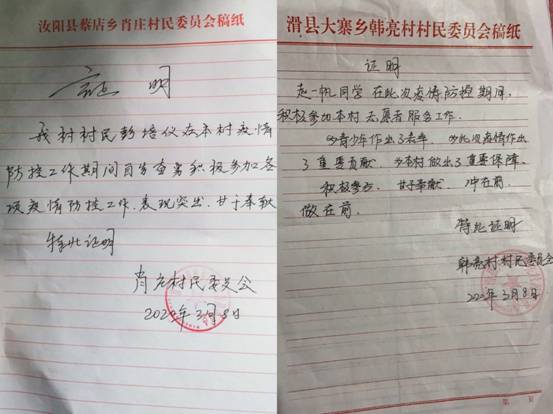 汝阳县蔡店乡肖庄村民委员会稿纸
证明
我村村民彭培仪在本村疫情
防控工作期间自告奋勇积极参加各
项疫情防控工作,表现突出,甘于奉献
特此证明
肖庄村民委员会
2020年3月8日
滑县大寨乡韩亮村村民委员会稿纸
证明
赵一帆同学在此次疫情防控期间,
积极参加本村志愿者服务工作。
为青少年作出了表率,为此次疫情作出
了重要贡献,为本村做出了重要保障。
积极参与,甘于奉献,冲在前,
做在前。
特此证明
韩亮村村民委员会
2020年3月8日
第 页